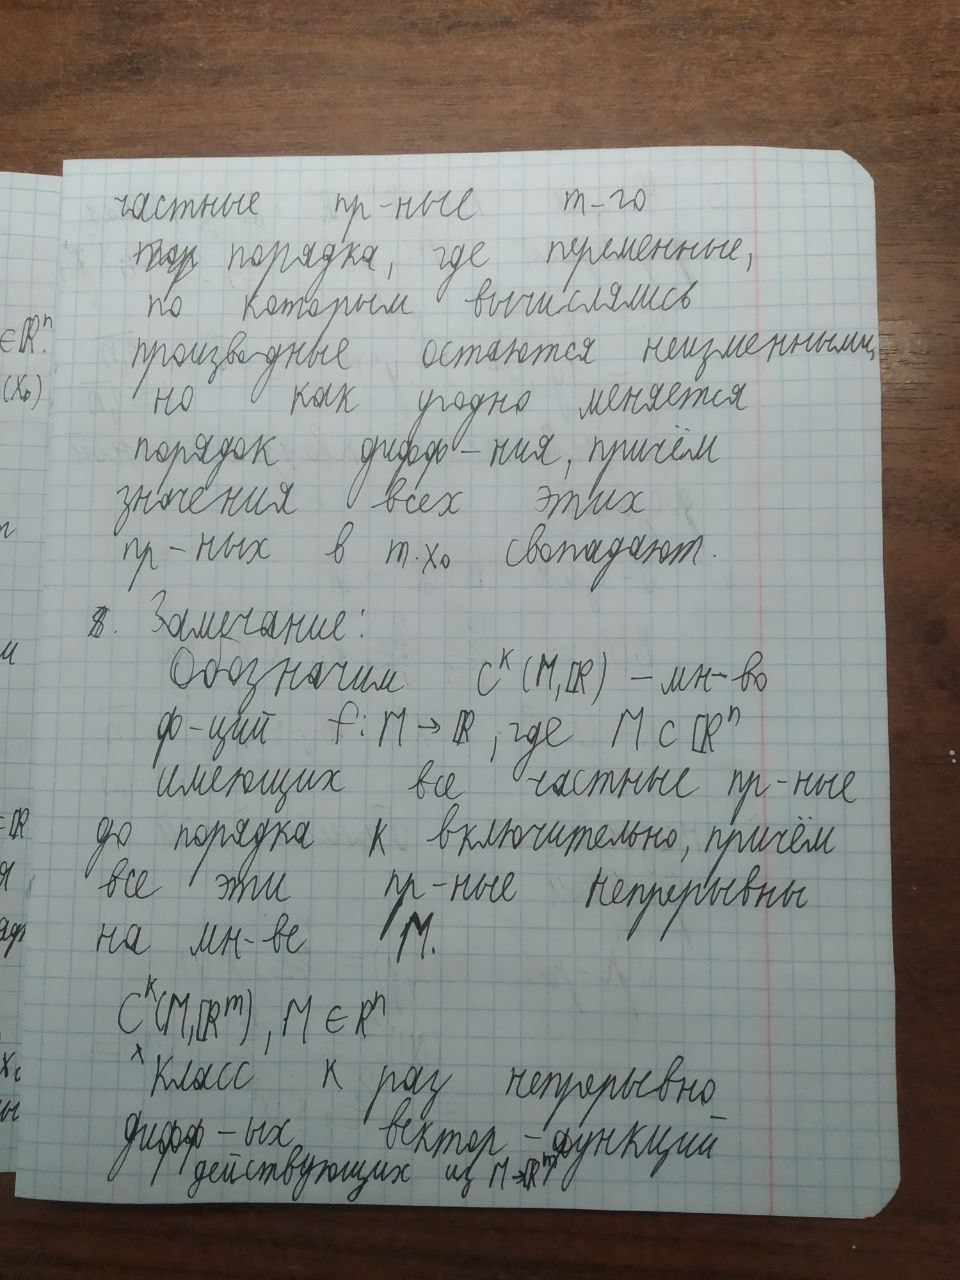 ∈ℝⁿ.
(x₀)
частные пр-ные m-го
порядка, где переменные,
по которым вычислялись
производные остаются неизменными,
но как угодно меняется
порядок дифф-ния, причём
значения всех этих
пр-ных в т. x₀ свопадают.
8. Замечание:
Обозначим Cᵏ(M,ℝ) – мн-во
ф-ций f: M → ℝ, где M ⊂ ℝⁿ
имеющих все частные пр-ные
до порядка k включительно, причём
все эти пр-ные непрерывны
на мн-ве M.
Cᵏ(M,ℝᵐ), M ∈ ℝⁿ
Класс k раз непрерывно
дифф-ых вектор-функций
действующих из M→ℝᵐ